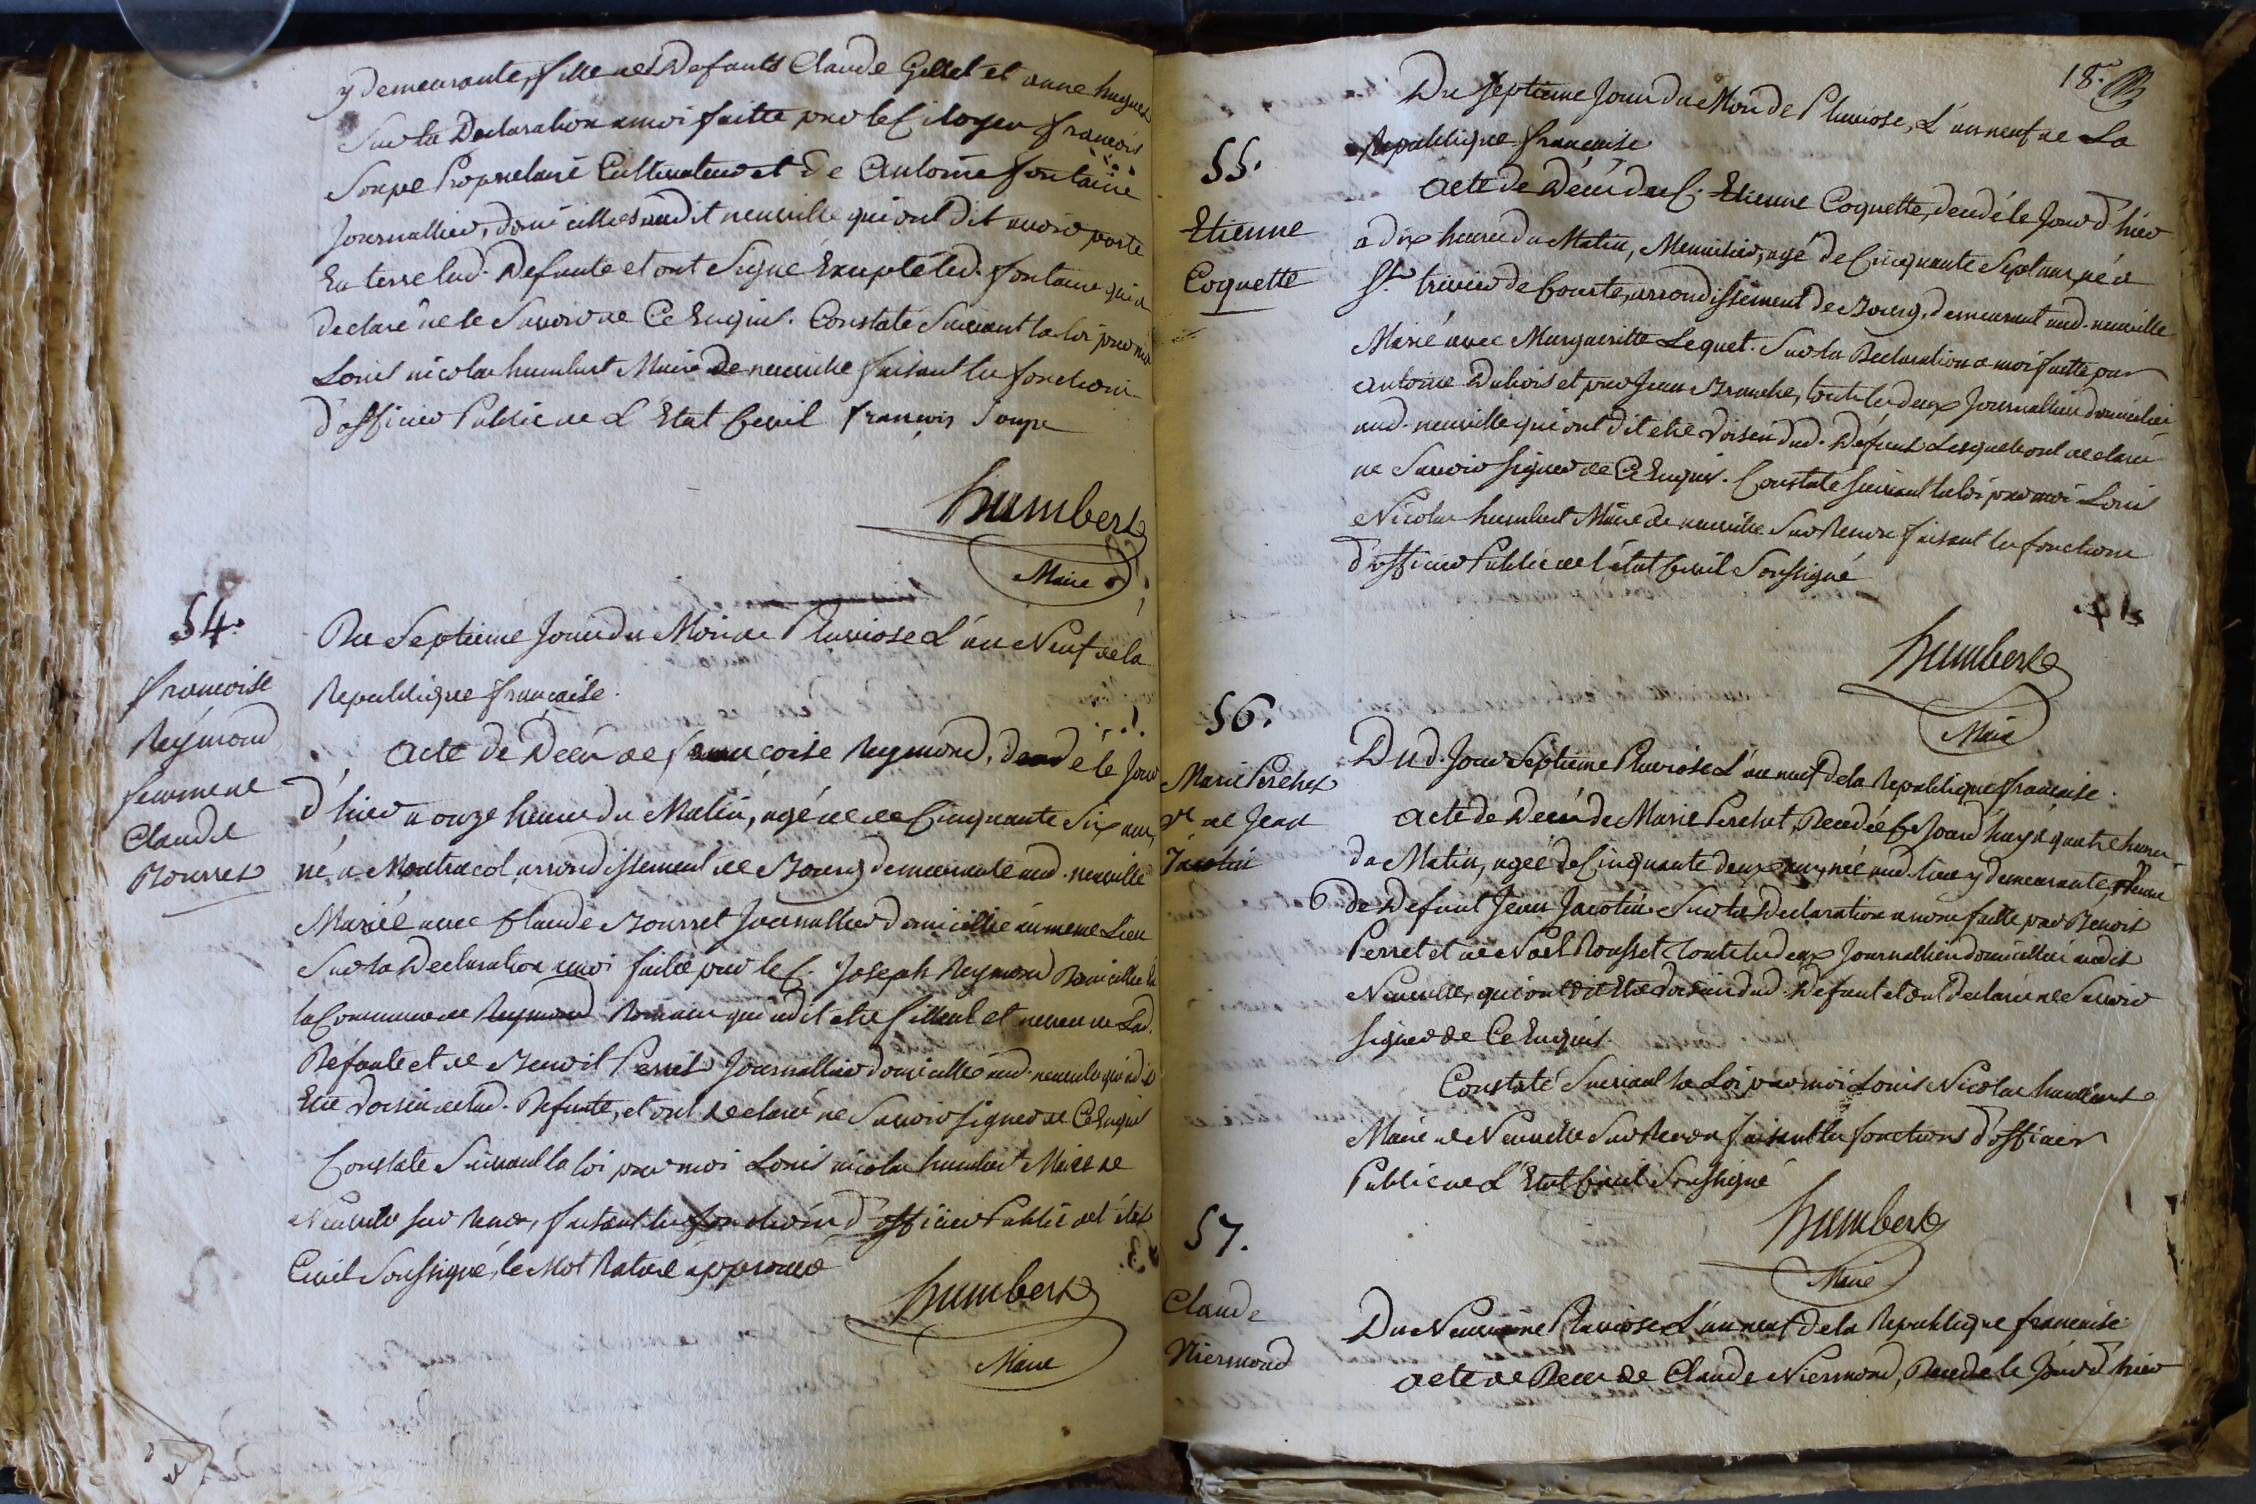 y demeurante, fille des Defunts Claude Gillet et anne hugues
Sur la Declaration a moi faitte par le Citoyen françois
Soupe Proprietaire Cultivateur et de Antoine fontaine
Journallier, domicilies audit neuville qui ont dit avoir porté
En terre lad. Defunte et ont Signé Excepté led. fontaine qui a
declaré ne le Savoir de Ce Enquis. Constaté Suivant la loi par moi
Louis nicolas humbert Maire de neuville faisant les fonctions
d'officier Public de L'Etat Civil françois Soupe
humbert
Maire
54.
françoise
Reymond
femme de
Claude
Bourret
Du Septieme Jour du Mois de Pluviose L'an Neuf de la
Republique française.
Acte de Décès de françoise Reymond, decedé le Jour
d'hier a onze heures du Matin, agée de Cinquante Six ans,
né a Montracol arrondissement de Bourg demeurante aud. neuville
Mariée avec Claude Bourret Journallier domicillié au meme Lieu
Sur la Declaration a moi faite par le C. Joseph Reymond Domicillié à
la Commune de Reymond Romans qui a dit etre filleul et neveu de Lad.
Défunte et de Benoit Perret Journallier domicillié aud. neuville qui a dit
Etre Voisin de lad. Defunte, et ont declaré ne Savoir Signer de Ce Enquis
Constaté Suivant la loi par moi Louis nicolas humbert Maire de
Neuville sur Renon, faisant les fonctions d'officier Public de l'état
Civil Soussigné, le Mot Raturé approuvé
humbert
Maire
18.
Du Septieme Jour du Mois de Pluviose, L'an neuf de La
Republique française
55.
Etienne
Coquette
Acte de Décès du C. Etienne Coquette, decedé le Jour d'hier
a dix heures du Matin, Menuisier, agé de Cinquante Sept ans né a
St. trivier de Courte, arrondissement de Bourg, demeurant aud. neuville
Marié avec Margueritte Lequet. Sur la Declaration a moi faitte par
Antoine Dubois et par Jean Branche, tout les deux Journallier domiciliés
aud. neuville qui ont dit etre Voisin dud. Défunt Lesquels ont declaré
ne Savoir signer de Ce Enquis. Constaté Suivant la loi par moi Louis
Nicolas humbert Maire de neuville Sur Renon faisant les fonctions
d'officier Public de l'état Civil Soussigné
humbert
Maire
56.
Marie Perchet
Ve de Jean
Jacotin
Dud. Jour Septieme Pluviose L'an neuf de la Republique française.
Acte de Décès de Marie Perchet, Decedée Ce Jourd'huy a quatre heures
du Matin, agée de Cinquante deux ans, née aud. lieu y demeurante, Veuve
de Defunt Jean Jacotin. Sur la Declaration a moi faitte par Benoit
Perret et de Noël Rousset tout les deux Journallier domicilliés audit
Neuville, qui ont dit Etre Voisin dud. Defunt et ont Declaré ne Savoir
Signer de Ce Enquis.
Constaté Suivant la Loi par moi Louis Nicolas humbert
Maire de Neuville Sur Renon faisant les fonctions d'officier
Public de L'Etat Civil Soussigné
humbert
Maire
57.
Claude
Niermond
Du Neuvieme Pluviose L'an neuf de la Republique française.
Acte de Deces de Claude Niermond, Decedé le Jour d'hier